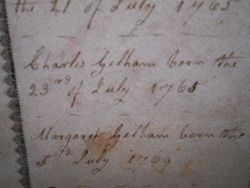 the 21 of July 1763
Charles Gelham born the
23rd of July 1765
Margaret Gelham born the
5th July 1769